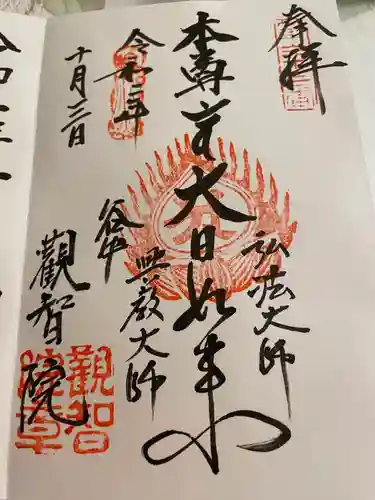 奉拝
弘法大師
本尊
大日如来
興教大師
谷中
令和二年
十月三日
觀智院
觀智